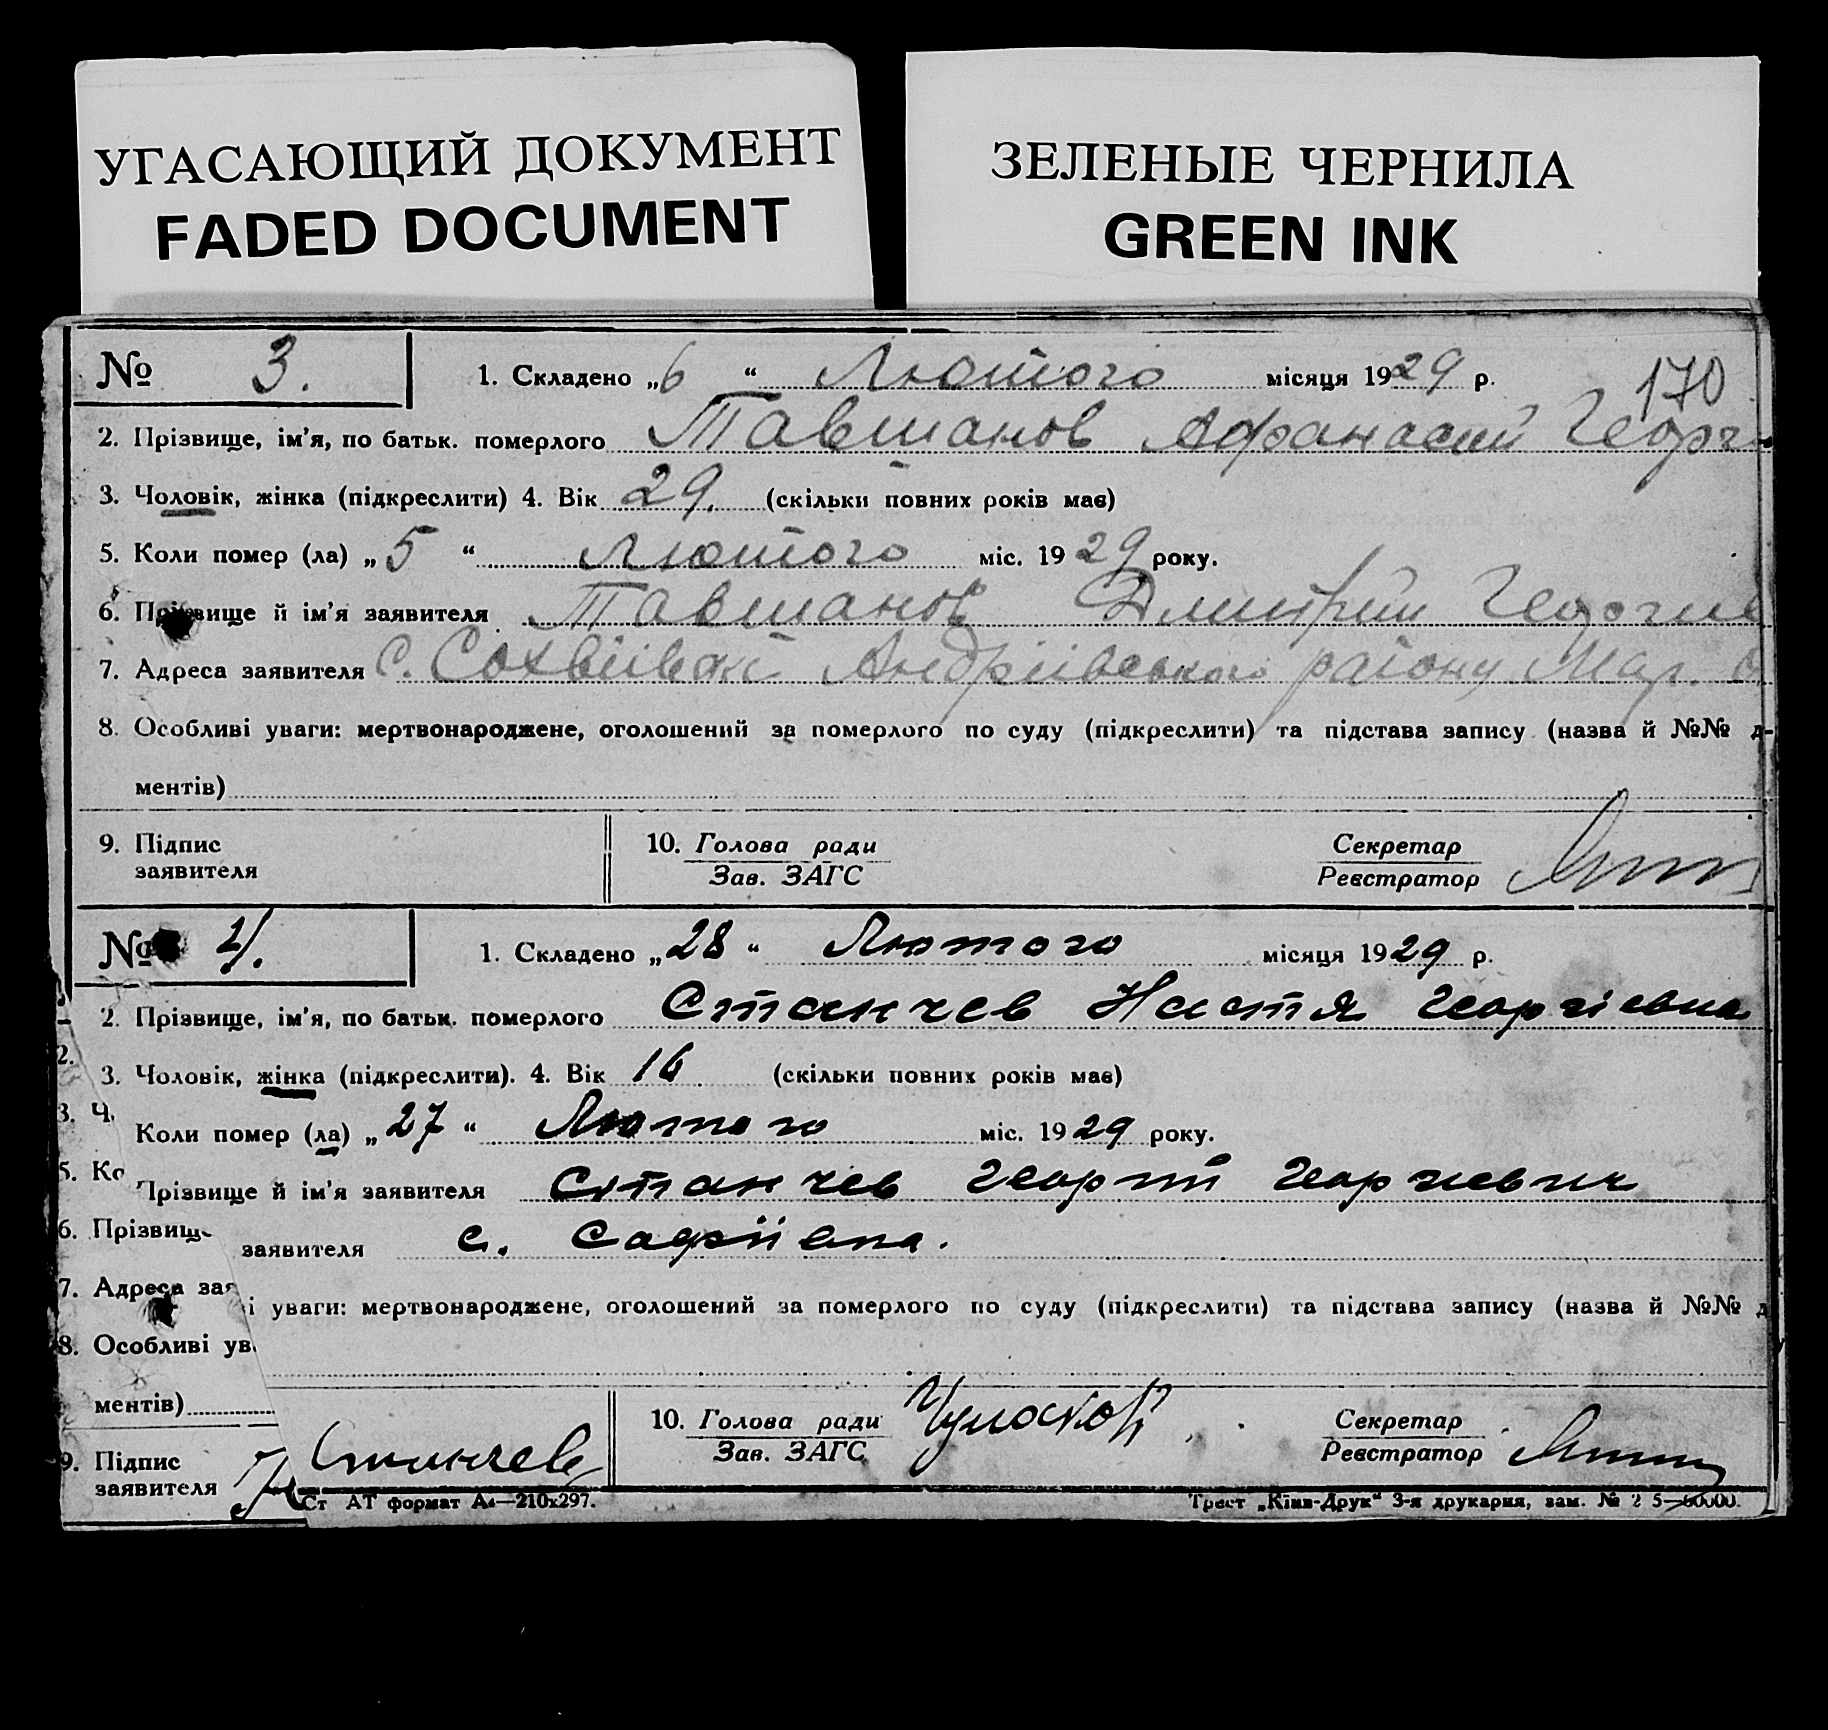 УГАСАЮЩИЙ ДОКУМЕНТ
FADED DOCUMENT
ЗЕЛЕНЫЕ ЧЕРНИЛА
GREEN INK
№ 3.
1. Складено „6“ Лютого місяця 1929 р.
170
2. Прізвище, ім'я, по батьк. померлого Тавшанов Афанасий Георг
3. Чоловік, жінка (підкреслити) 4. Вік 29. (скільки повних років має)
5. Коли помер (ла) „5“ Лютого міс. 1929 року.
6. Прізвище й ім'я заявителя Тавшанов Дмитрий Георгие
7. Адреса заявителя с. Андріівського району Мар.
8. Особливі уваги: мертвонароджене, оголошений за померлого по суду (підкреслити) та підстава запису (назва й №№ д-
ментів)
9. Підпис заявителя
10. Голова ради
Зав. ЗАГС
Секретар
Реєстратор
№ 4.
1. Складено „28“ Лютого місяця 1929 р.
2. Прізвище, ім'я, по батьк. померлого Станчев Настя Георгіевна
3. Чоловік, жінка (підкреслити). 4. Вік 16 (скільки повних років має)
Коли помер (ла) „27“ Лютого міс. 1929 року.
Прізвище й ім'я заявителя Станчев Георгий Георгиевич
заявителя с. Софіївка.
і уваги: мертвонароджене, оголошений за померлого по суду (підкреслити) та підстава запису (назва й №№ д
2.
3. Ч
5. Ко
6. Прізвище
7. Адреса зая
8. Особливі ув
ментів)
9. Підпис
заявителя
Станчев
10. Голова ради
Зав. ЗАГС
Секретар
Реєстратор
Ст АТ формат А4—210х297.
Трест „Київ-Друк“ 3-я друкарня, зам. № 2 5—60000.